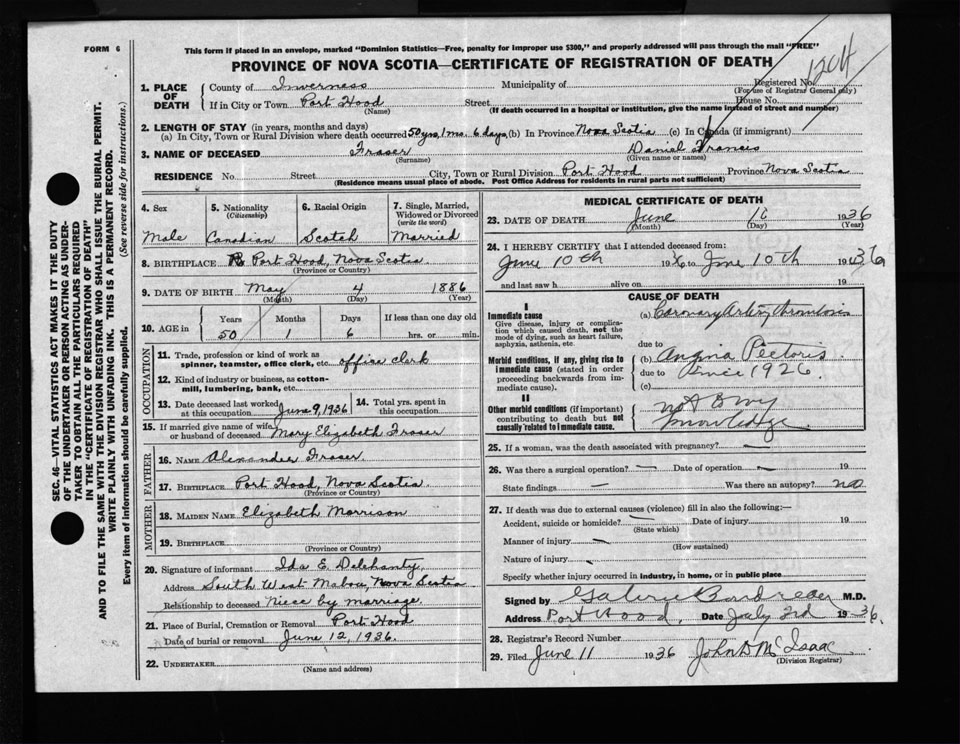 FORM 6
This form if placed in an envelope, marked "Dominion Statistics—Free, penalty for improper use $300," and properly addressed will pass through the mail "FREE"
PROVINCE OF NOVA SCOTIA—CERTIFICATE OF REGISTRATION OF DEATH
1204
SEC. 46—VITAL STATISTICS ACT MAKES IT THE DUTY
OF THE UNDERTAKER OR PERSON ACTING AS UNDER-
TAKER TO OBTAIN ALL THE PARTICULARS REQUIRED
IN THE "CERTIFICATE OF REGISTRATION OF DEATH"
AND TO FILE THE SAME WITH THE DIVISION REGISTRAR WHO SHALL ISSUE THE BURIAL PERMIT.
WRITE PLAINLY WITH UNFADING INK. THIS IS A PERMANENT RECORD.
Every item of information should be carefully supplied. (See reverse side for instructions.)
1. PLACE OF DEATH
County of Inverness Municipality of Registered No.
(For use of Registrar General only)
If in City or Town Port Hood Street House No.
(Name) (If death occurred in a hospital or institution, give the name instead of street and number)
2. LENGTH OF STAY (in years, months and days)
(a) In City, Town or Rural Division where death occurred 50 yrs, 1 mo. 6 days (b) In Province Nova Scotia (c) In Canada (if immigrant)
3. NAME OF DECEASED Fraser Daniel Francis
(Surname) (Given name or names)
RESIDENCE No. Street City, Town or Rural Division Port Hood Province Nova Scotia
(Residence means usual place of abode. Post Office Address for residents in rural parts not sufficient)
4. Sex 5. Nationality (Citizenship) 6. Racial Origin 7. Single, Married, Widowed or Divorced (write the word)
Male Canadian Scotch Married
8. BIRTHPLACE Port Hood, Nova Scotia
(Province or Country)
9. DATE OF BIRTH May 4 1886
(Month) (Day) (Year)
10. AGE in Years Months Days If less than one day old
50 1 6 hrs. or min.
OCCUPATION
11. Trade, profession or kind of work as
spinner, teamster, office clerk, etc. office clerk
12. Kind of industry or business, as cotton-
mill, lumbering, bank, etc.
13. Date deceased last worked at this occupation June 9, 1936 14. Total yrs. spent in this occupation
15. If married give name of wife or husband of deceased Mary Elizabeth Fraser
FATHER
16. NAME Alexander Fraser
17. BIRTHPLACE Port Hood, Nova Scotia
(Province or Country)
MOTHER
18. MAIDEN NAME Elizabeth Morrison
19. BIRTHPLACE
(Province or Country)
20. Signature of informant Ida E. Delehanty
Address South West Mabou, Nova Scotia
Relationship to deceased Niece by marriage.
21. Place of Burial, Cremation or Removal Port Hood
Date of burial or removal June 12, 1936.
22. UNDERTAKER
(Name and address)
MEDICAL CERTIFICATE OF DEATH
23. DATE OF DEATH June 1936
(Month) (Day) (Year)
24. I HEREBY CERTIFY that I attended deceased from:
June 10th 1936 to June 10th 1936
and last saw h alive on 19
CAUSE OF DEATH
I
Immediate cause
Give disease, injury or complica-
tion which caused death, not the
mode of dying, such as heart failure,
asphyxia, asthenia, etc.
(a) Coronary Artery Thrombosis
due to
Morbid conditions, if any, giving rise to
immediate cause (stated in order
proceeding backwards from im-
mediate cause).
(b) Angina Pectoris
due to since 1926.
(c)
II
Other morbid conditions (if important)
contributing to death but not
causally related to immediate cause.
not to my
knowledge
25. If a woman, was the death associated with pregnancy?
26. Was there a surgical operation? — Date of operation — 19
State findings — Was there an autopsy? no
27. If death was due to external causes (violence) fill in also the following:—
Accident, suicide or homicide? Date of injury 19
(State which)
Manner of injury
(How sustained)
Nature of injury
Specify whether injury occurred in industry, in home, or in public place
Signed by M.D.
Address Port Hood, Date July 3rd 1936.
28. Registrar's Record Number
29. Filed June 11 1936 John D McIsaac
(Division Registrar)